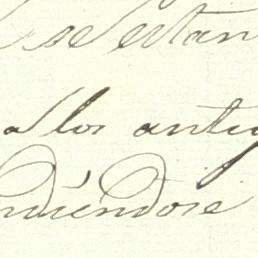 se estan
a los antig
ndiéndose